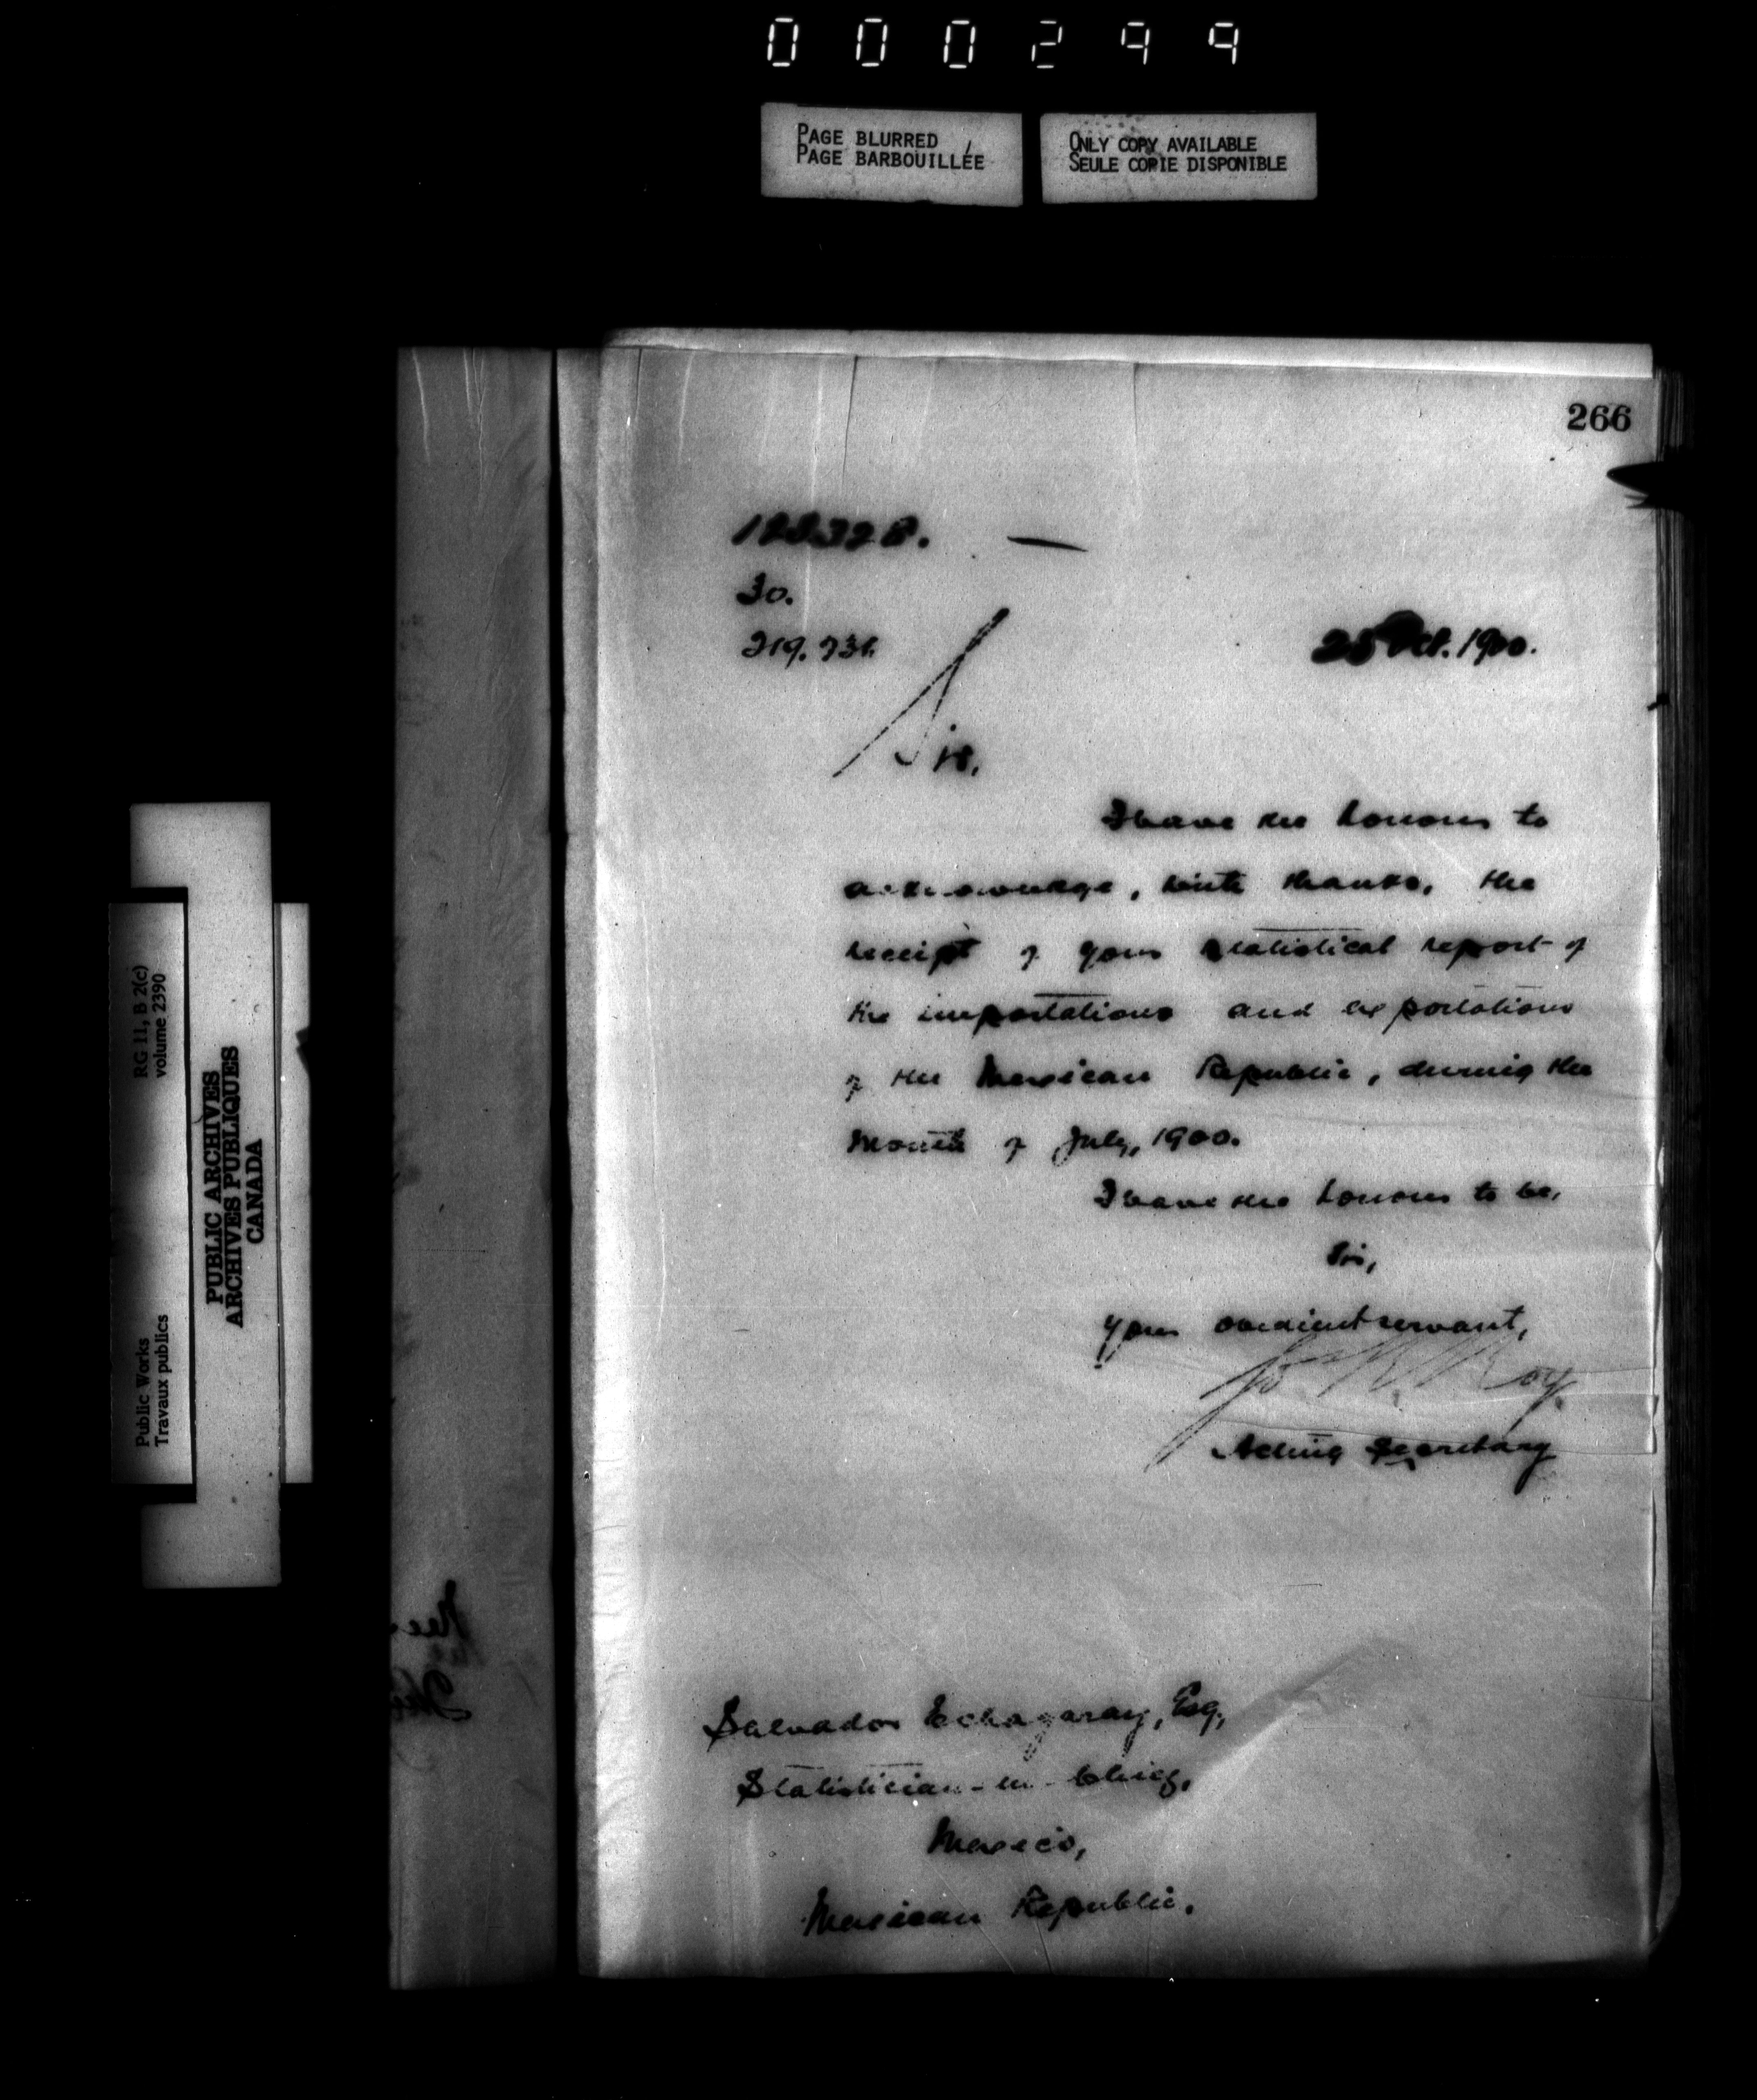 000299
PAGE BLURRED
PAGE BARBOUILLÉE
ONLY COPY AVAILABLE
SEULE COPIE DISPONIBLE
266
30.
219.731.
25 Oct. 1900.
Sir,
I have the honour to
acknowledge, with thanks, the
receipt of your statistical report of
the importations and exportations
of the Mexican Republic, during the
month of July, 1900.
I have the honour to be,
Sir,
Your obedient servant,
Jos R Roy
Acting Secretary
Salvador Echagaray, Esq,
Statistician-in-Chief,
Mexico,
Mexican Republic.
RG 11, B 2(c)
volume 2390
Public Works
Travaux publics
PUBLIC ARCHIVES
ARCHIVES PUBLIQUES
CANADA